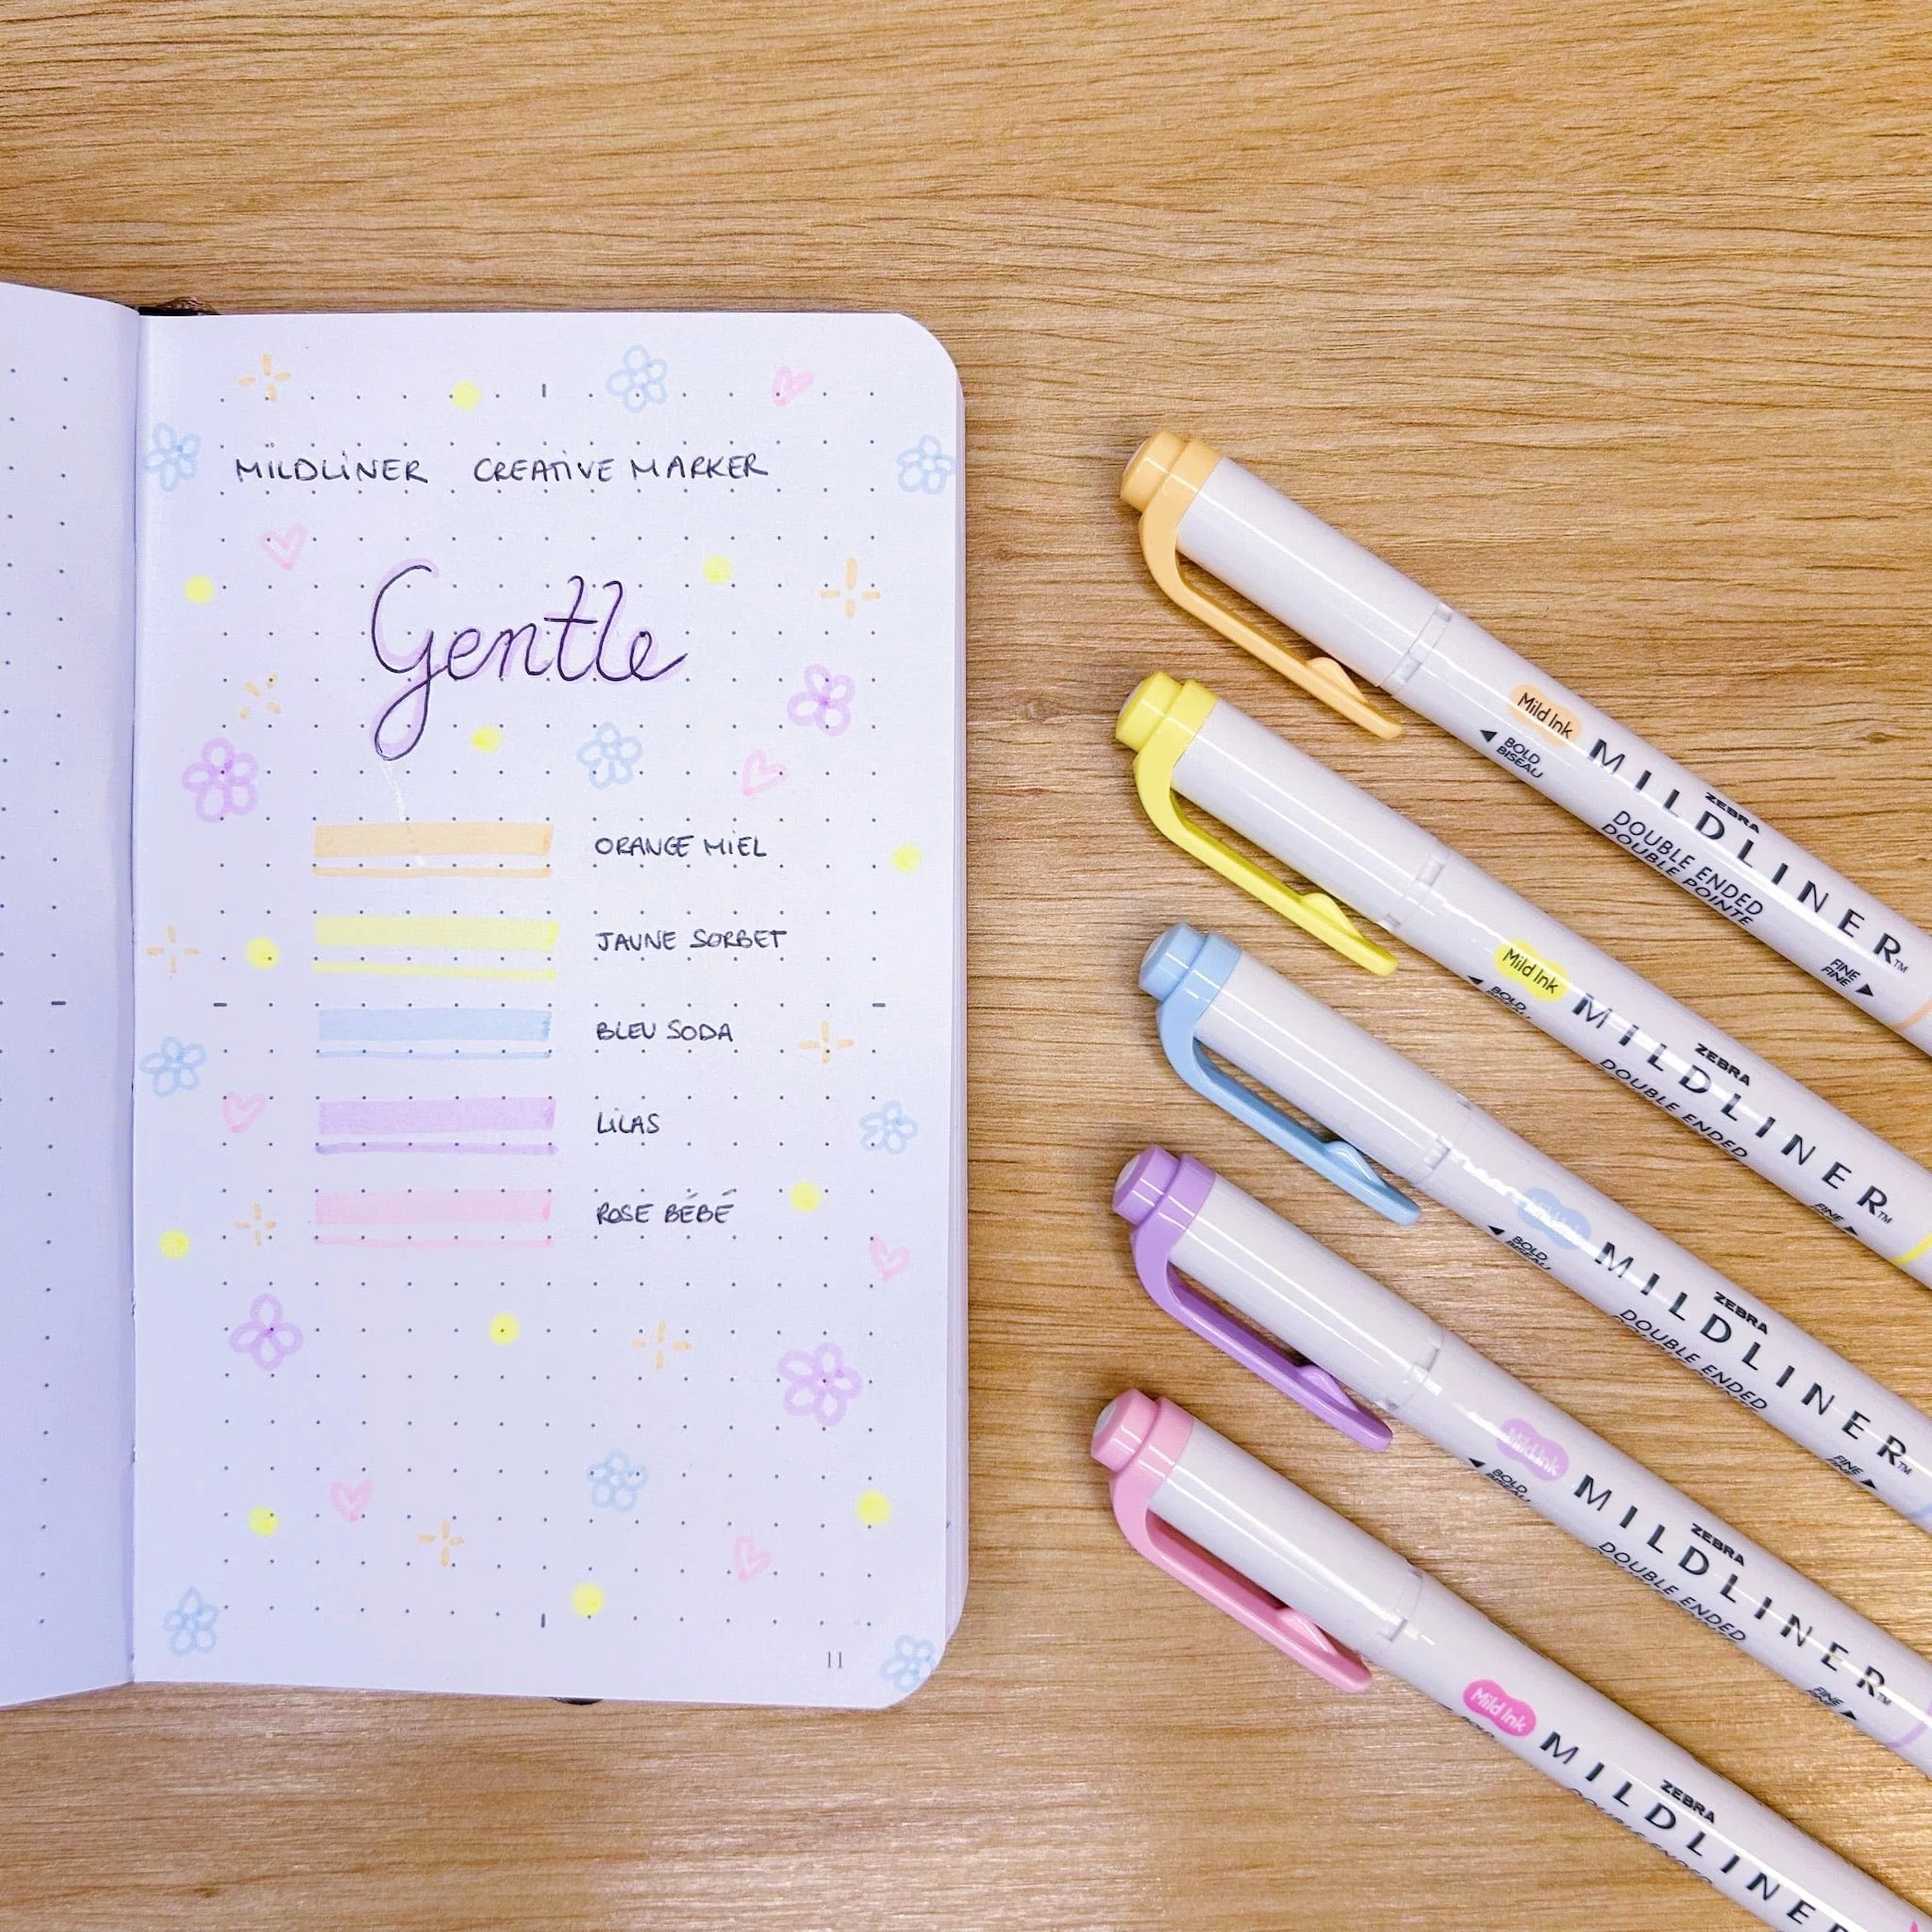 MILDLINER CREATIVE MARKER
Gentle
ORANGE MIEL
JAUNE SORBET
BLEU SODA
LILAS
ROSE BÉBÉ
11
Mild Ink
BOLD
BISEAU
ZEBRA
MILDLINER™
DOUBLE ENDED
DOUBLE POINTE
FINE
FINE
Mild Ink
BOLD
ZEBRA
MILDLINER™
DOUBLE ENDED
FINE
Mild Ink
BOLD
BISEAU
ZEBRA
MILDLINER™
DOUBLE ENDED
FINE
FINE
Mild Ink
BOLD
BISEAU
ZEBRA
MILDLINER™
DOUBLE ENDED
FINE
FINE
Mild Ink
ZEBRA
MILDLINE